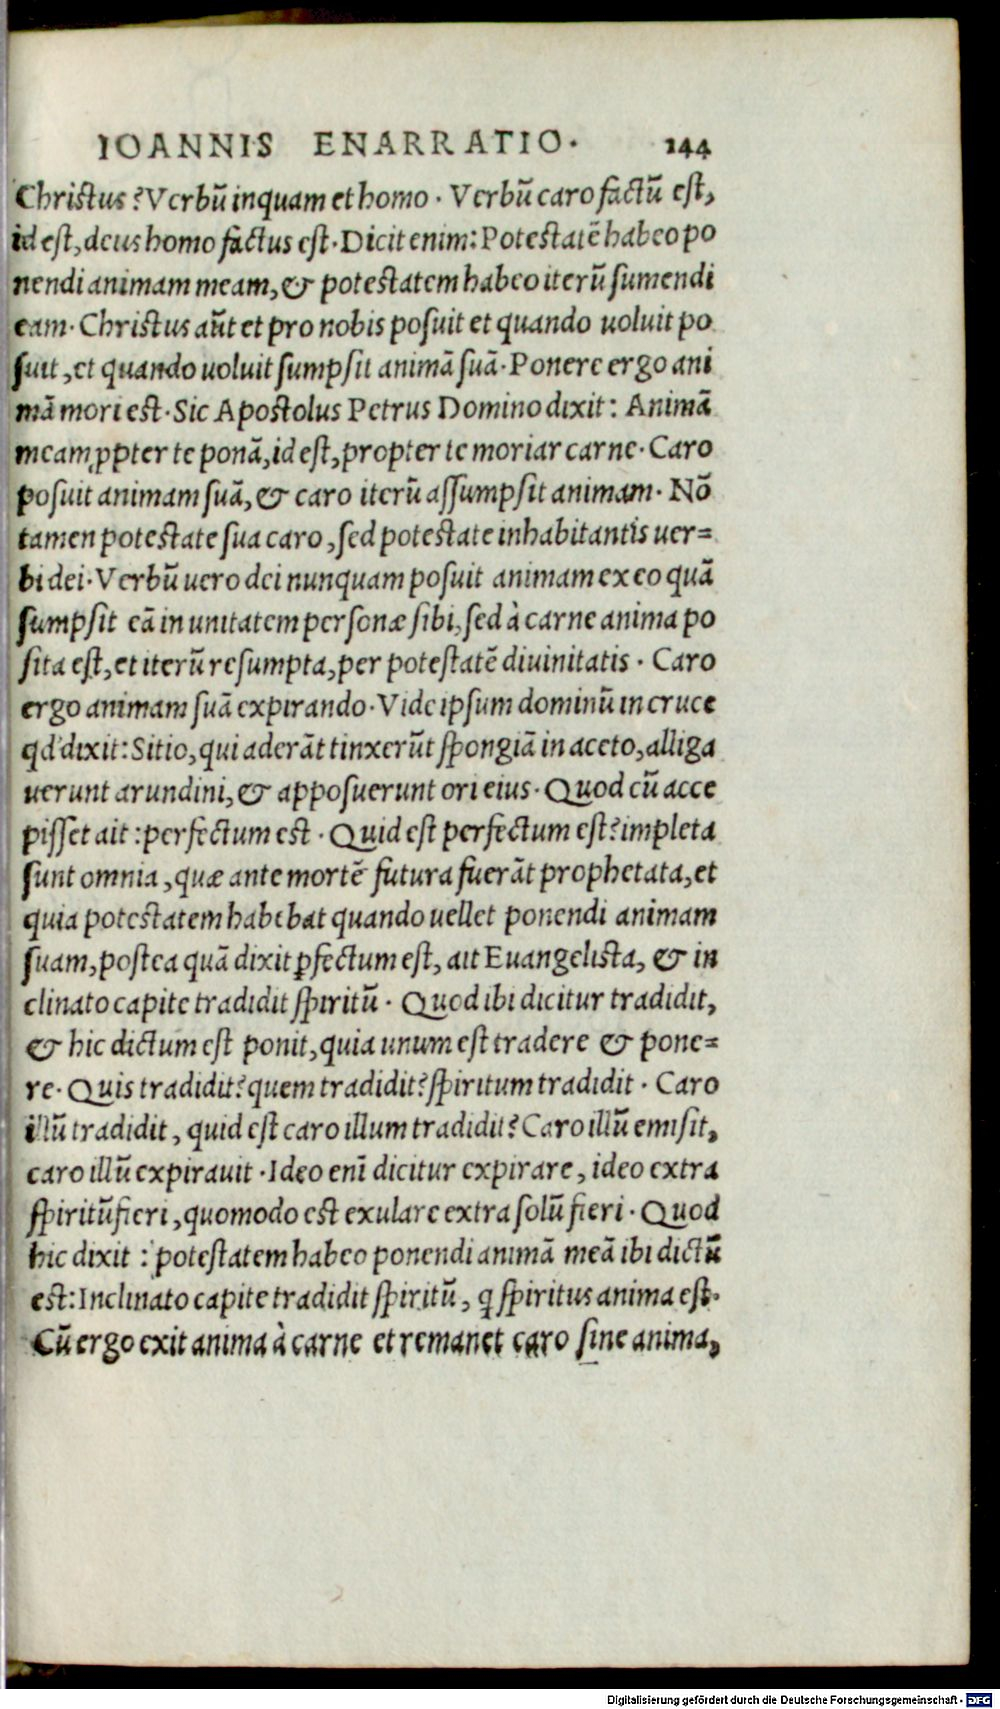 IOANNIS ENARRATIO. 144
Christus? Verbũ inquam et homo. Verbũ caro factũ est,
id est, deus homo factus est. Dicit enim: Potestatẽ habeo po
nendi animam meam, & potestatem habeo iterũ sumendi
eam. Christus aũt et pro nobis posuit et quando uoluit po
suit, et quando uoluit sumpsit animã suã. Ponere ergo ani
mã mori est. Sic Apostolus Petrus Domino dixit: Animã
meam ꝓpter te ponã, id est, propter te moriar carne. Caro
posuit animam suã, & caro iterũ assumpsit animam. Nõ
tamen potestate sua caro, sed potestate inhabitantis uer=
bi dei. Verbũ uero dei nunquam posuit animam ex eo quã
sumpsit eã in unitatem personæ sibi, sed à carne anima po
sita est, et iterũ resumpta, per potestatẽ diuinitatis. Caro
ergo animam suã expirando. Vide ipsum dominũ in cruce
qd dixit: Sitio, qui aderãt tinxerũt spongiã in aceto, alliga
uerunt arundini, & apposuerunt ori eius. Quod cũ acce
pisset ait: perfectum est. Quid est perfectum est? impleta
sunt omnia, quæ ante mortẽ futura fuerãt prophetata, et
quia potestatem habebat quando uellet ponendi animam
suam, postea quã dixit ꝑfectum est, ait Euangelista, & in
clinato capite tradidit spiritũ. Quod ibi dicitur tradidit,
& hic dictum est ponit, quia unum est tradere & pone=
re. Quis tradidit? quem tradidit? spiritum tradidit. Caro
illũ tradidit, quid est caro illum tradidit? Caro illũ emisit,
caro illũ expirauit. Ideo enĩ dicitur expirare, ideo extra
spiritũ fieri, quomodo est exulare extra solũ fieri. Quod
hic dixit: potestatem habeo ponendi animã meã ibi dictũ
est: Inclinato capite tradidit spiritũ, q̃ spiritus anima est.
Cũ ergo exit anima à carne et remanet caro sine anima,
Digitalisierung gefördert durch die Deutsche Forschungsgemeinschaft - DFG